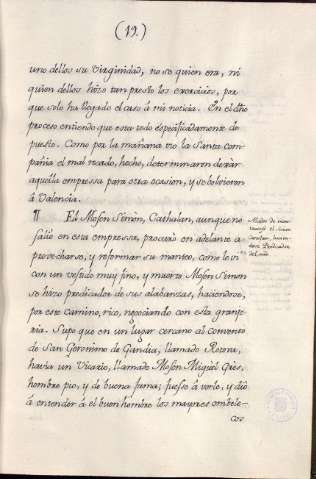 (19.)
uno dellos su Virginidad, no se quien era, ni
quien dellos hizo tan presto los exorcios, por
que solo ha llegado el caso á mi noticia. En el dho
proceso entiendo que esta todo especificadamente de
puesto. Como por la mañana vio la Santa com-
pañia el mal recado, hecho, determinaron dexar
aquella empressa para otra ocasion, y se bolvieron
á Valencia.
¶ El Mosen Simon, Cathalan, aunque no
salió en esta empressa, procuró en adelante a
provecharse, y reformar su manteo, como le vi
con un vestido muy fino, y muerto Mosen Simon
se hizo predicador de sus alabanzas, haciendose,
por este camino, rico, negociando con esta grange
ria. Supo que en un lugar cercano al Convento
de San Geronimo de Gandia, llamado Rotova,
havia un Vicario, llamado Mosen Miguel Gres,
hombre pio, y de buena fama; fuesse á verle, y dió
á entender á el buen hombre los mayores embele-
cos